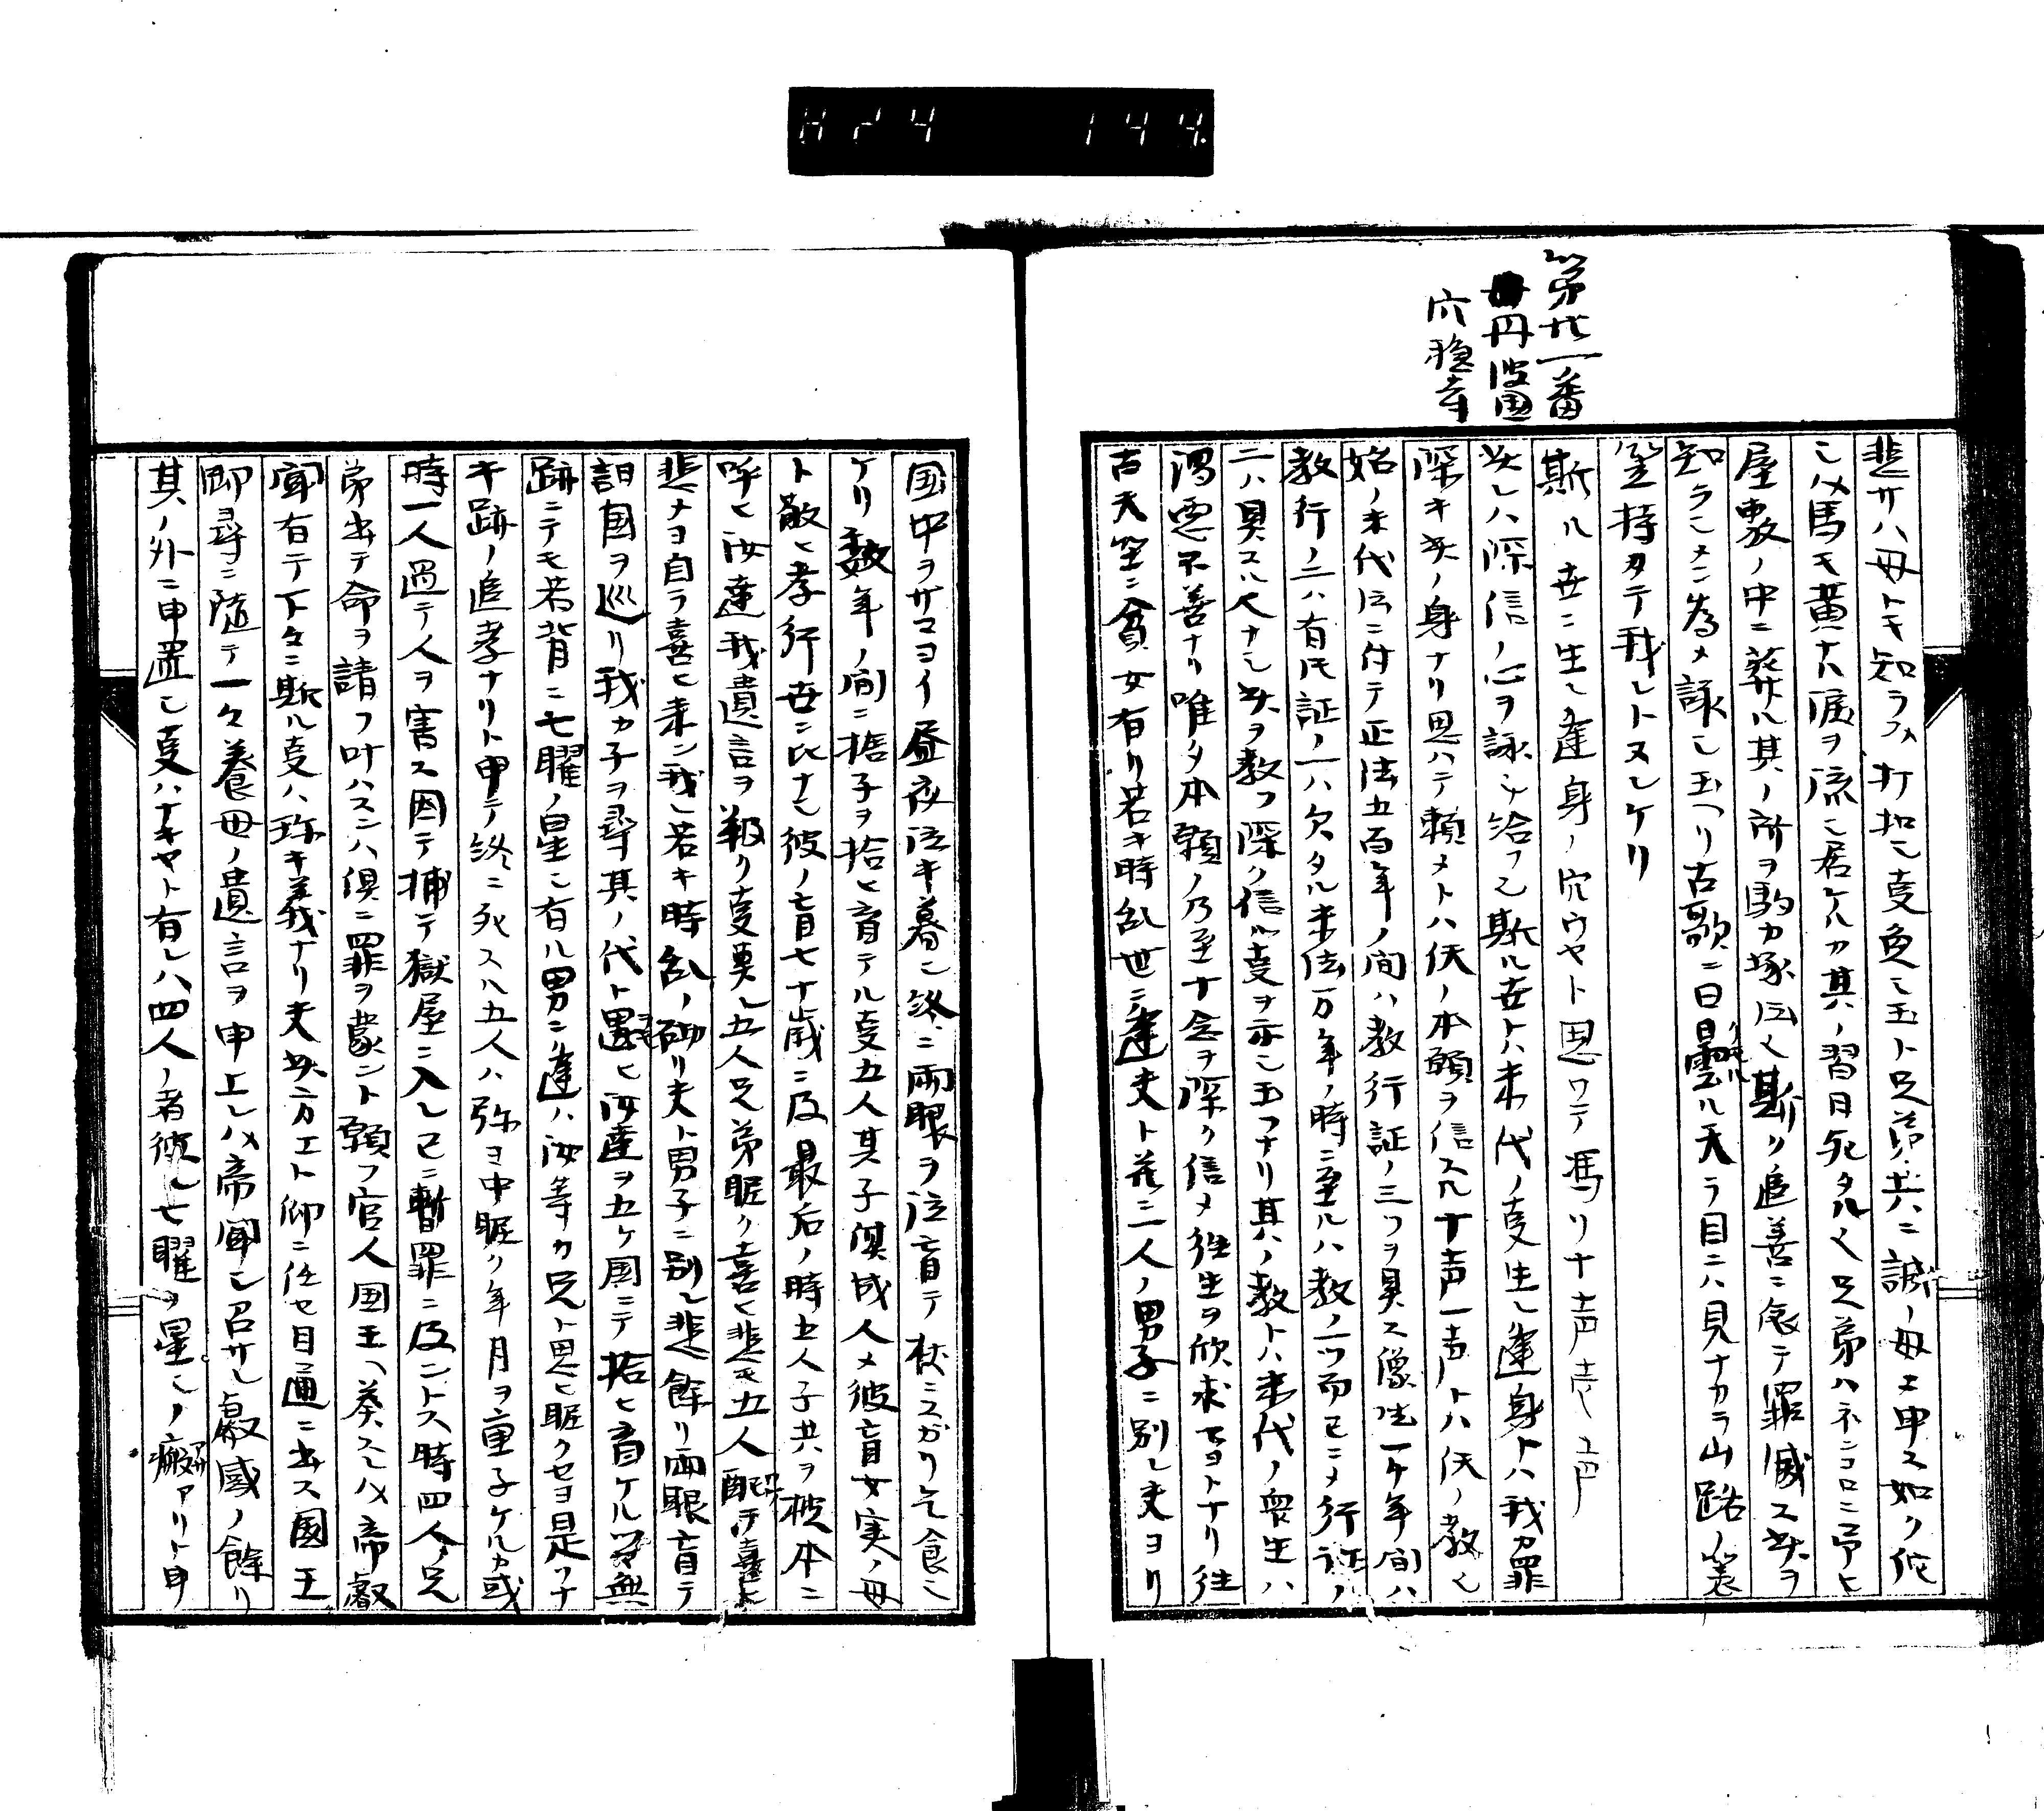 824 144
第廿一番
丹波国
穴穏寺
悲サハ母トモ知ラス打擲シ支免シ玉ト兄弟共ニ誠ノ母エ申ス如ク佗
シハ馬モ黄ナル涙ヲ流シ居ケルカ其ノ習日死タル也兄弟ハネンコロニ弔ヒ
屋敷ノ中ニ葬ル其ノ所ヲ駒カ塚云也斯ク追善ニ依テ罪滅ス夫ヲ
知ラシメン為メ詠シ玉ヘリ古歌ニ曰曇ル天ラ目ニハ見ナカラ山路ノ簑
笠持タテ我レトヌレケリ
斯ル世ニ生レ逢身ノ穴ウヤト思ワテ馮リ十声一声
夫レハ深信ノ心ヲ詠シ給フ也斯ル世トハ末代ノ支生レ逢身トハ我カ罪
深キ夫ノ身ナリ思ハテ頼メトハ仏ノ本願ヲ信スル十声一声トハ仏ノ教也
始ノ末代云ニ付テ正法五百年ノ間ハ教行証ノ三ツヲ具ス像法一千年間ハ
教行ノ二ハ有氏証ノ一ハ欠タル末法万年ノ時ニ至ルハ教ノ一ツ而已ニメ行証ノ
二ハ具スル七ナシ夫ヲ教フ深ク信ル支ヲ示シ玉フナリ其ノ教トハ末代ノ衆生ハ
濁悪不善ナリ唯タ本願ノ乃至十念ヲ深ク信メ往生ヲ欣求セヨトナリ往
古天竺ニ貧女有リ若キ時乱世ニ逢夫ト并三人ノ男子ニ別レ夫ヨリ
国中ヲサマヨイ昼夜泣キ暮シ終ニ両眼ヲ泣盲テ杖ニスガリ乞食シ
ケリ数年ノ間ニ捨子ヲ拾ヒ育テル支五人其子倶成人メ彼盲女実ノ母
ト敬ヒ孝行世ニ比ナシ彼ノ盲七十歳ニ及最后ノ時五人子共ヲ枕本ニ
呼ヒ汝達我遺言ヲ報ク支奥レ五人兄弟眤ク喜ヒ悲モ五人配テ喜ヒ
悲メヨ自ラ喜ヒ来ン我レ若キ時乱ノ砌リ夫ト男子ニ別レ悲余リ両眼盲テ
諸国ヲ巡リ我カ子ヲ尋其ノ代ト思ヒ汝達ヲ五ケ国ニテ拾ヒ育ケル無
跡ニテモ若背ニ七曜ノ星シ有ル男ニ逢ハ汝等カ兄ト思ヒ眤クセヨ是ワナ
キ跡ノ追孝ナリト申テ終ニ死スハ五人ハ弥ヨ中眤ク年月ヲ重子ケルカ或
時一人過テ人ヲ害ス因テ捕テ獄屋ニ入レ已ニ斬罪ニ及ントス時四人ノ兄
弟出テ命ヲ請フ叶ハスンハ倶ニ罪ヲ蒙ント願フ官人国王ヘ奏スレハ帝叡
聞有テ下々ニ斯ル支ハ珎キ義ナリ夫此方エト仰ニ任セ目通ニ出ス国王
御尋ニ随テ一々養母ノ遺言ヲ申上レハ帝聞シ召サレ叡感ノ餘リ
其ノ外ニ申置シ支ハナキヤト有レハ四人ノ者彼レ七曜ヲ星シノ瘢アリト申